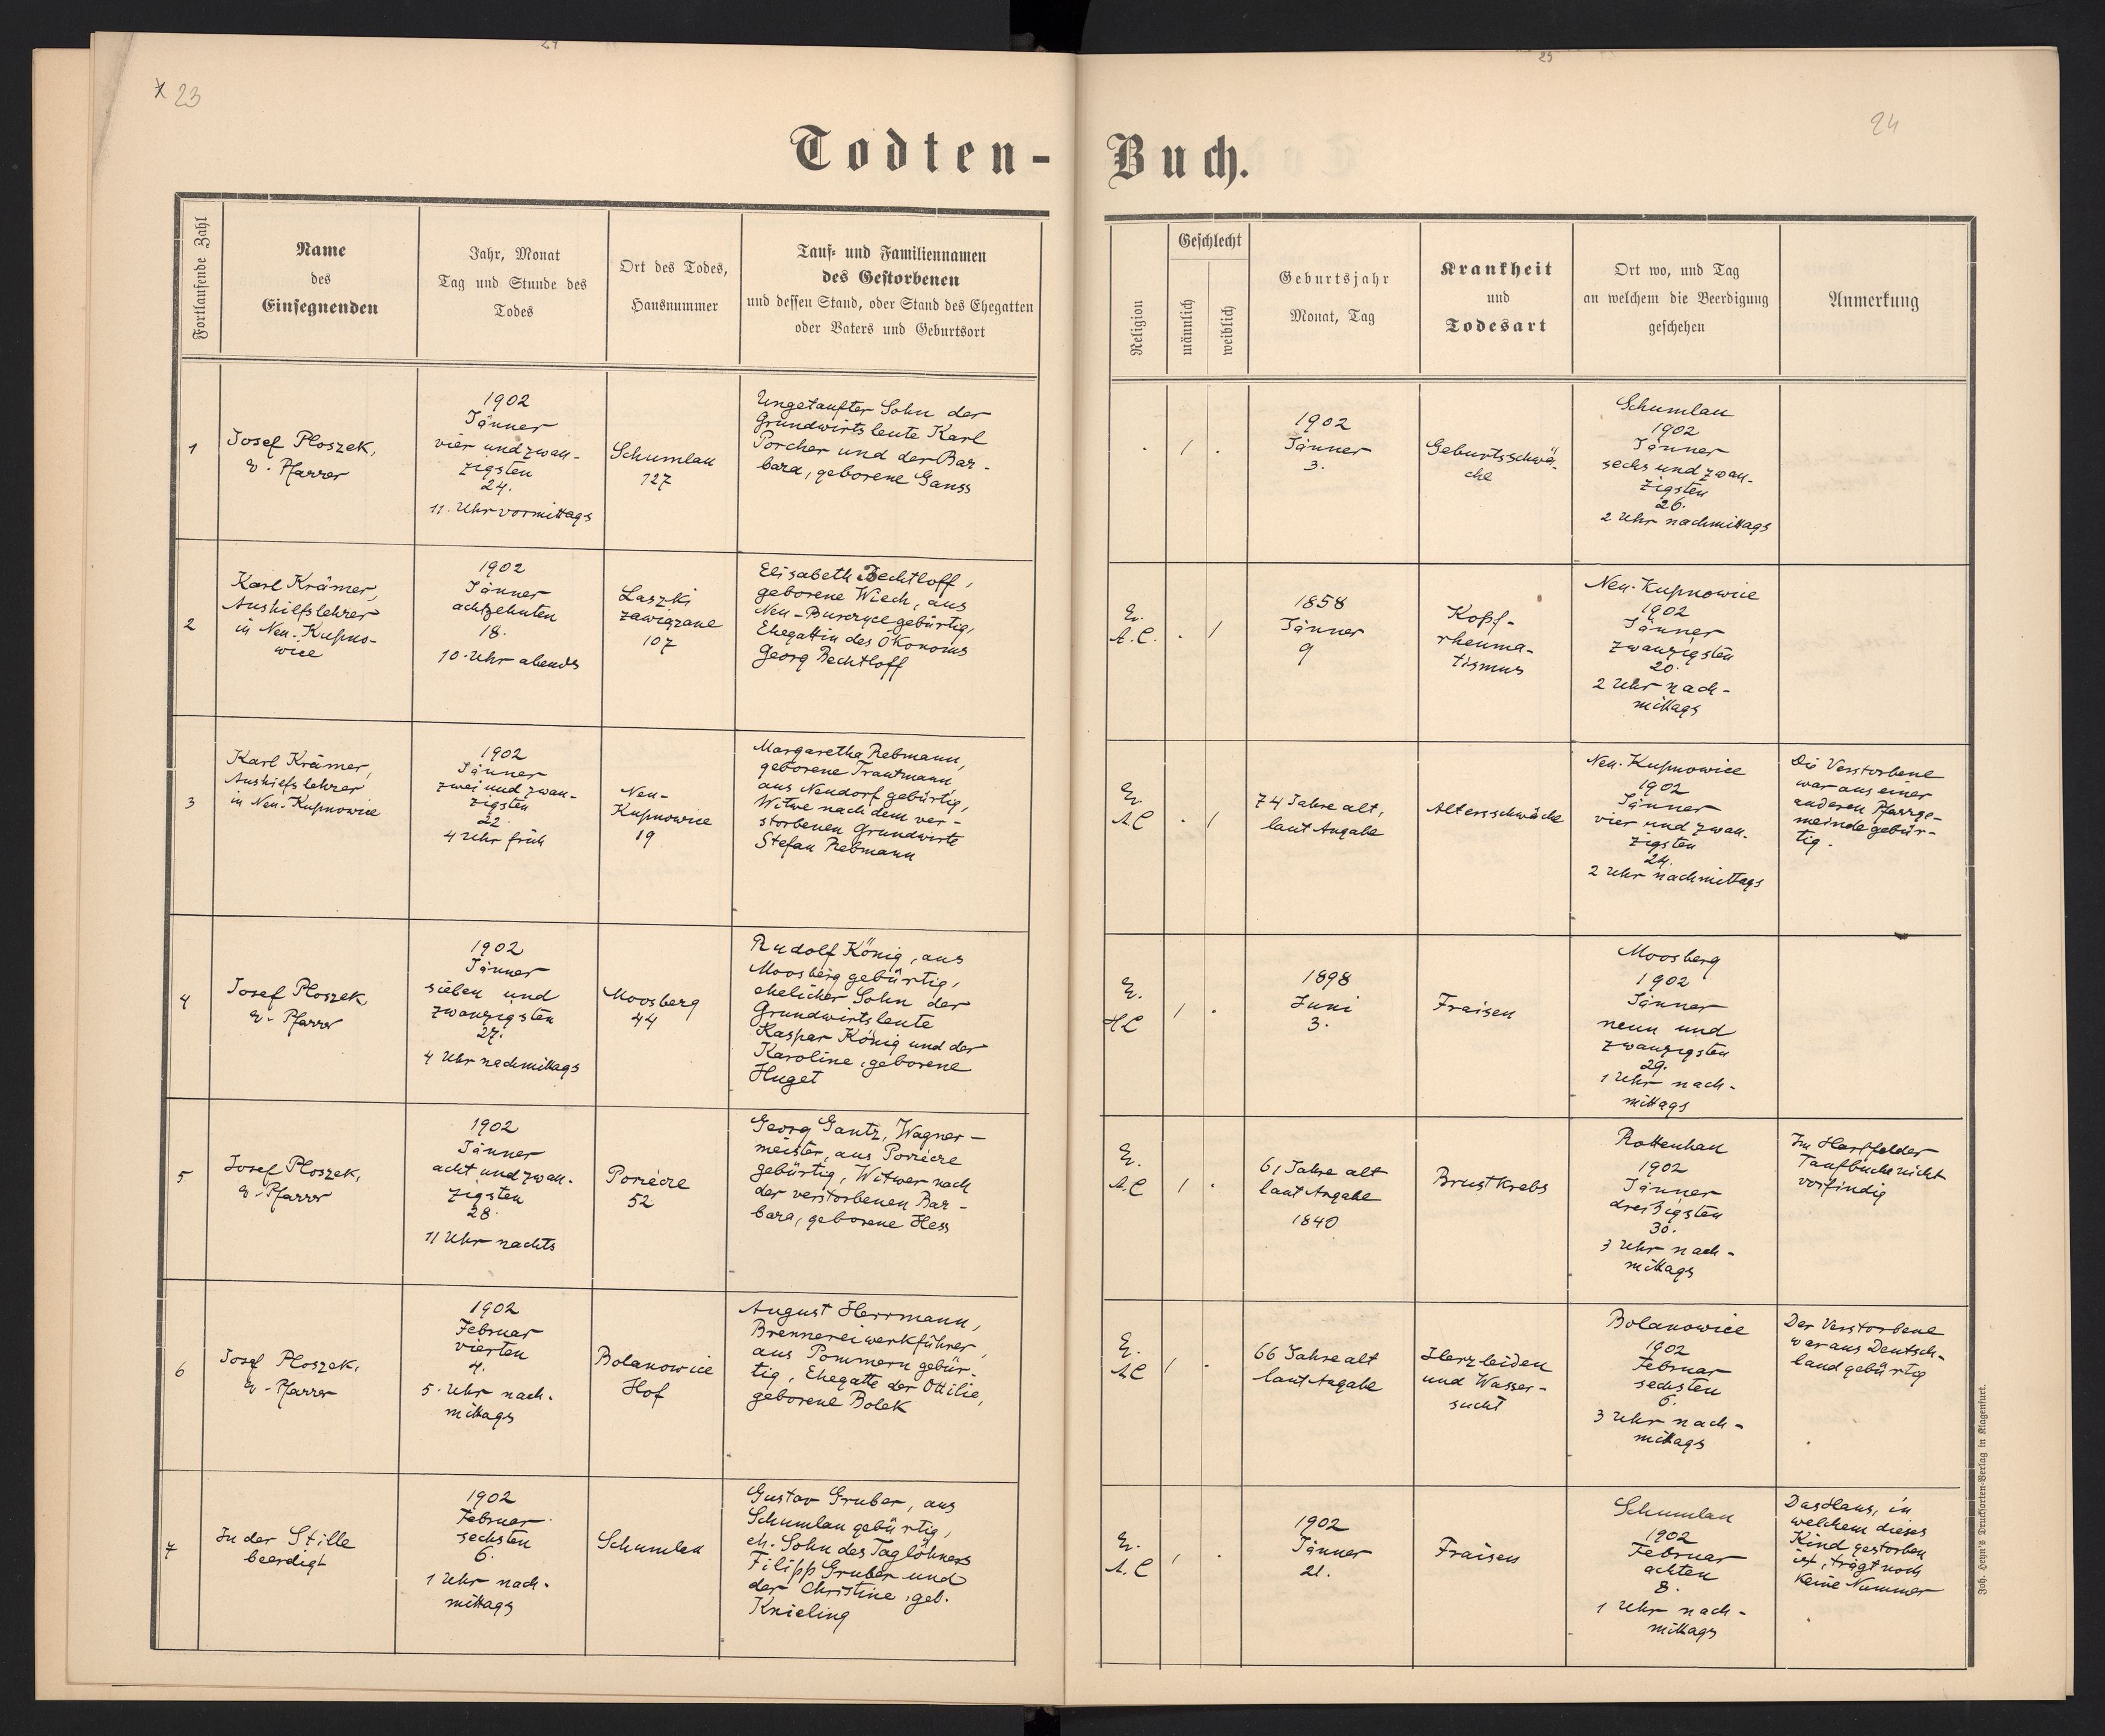 x 23
24
Todten-
Buch.
Fortlaufende Zahl
Name
des
Einsegnenden
Jahr, Monat
Tag und Stunde des
Todes
Ort des Todes,
Hausnummer
Tauf- und Familiennamen
des Gestorbenen
und dessen Stand, oder Stand des Ehegatten
oder Vaters und Geburtsort
Religion
Geschlecht
männlich
weiblich
Geburtsjahr
Monat, Tag
Krankheit
und
Todesart
Ort wo, und Tag
an welchem die Beerdigung
geschehen
Anmerkung
1
Josef Ploszek,
ev. Pfarrer
1902
Jänner
vier und zwan-
zigsten
24.
11. Uhr vormittags
Schumlau
127
Ungetaufter Sohn der
Grundwirtsleute Karl
Porcher und der Bar-
bara, geborene Ganss
. 1 .
1902
Jänner
3.
Geburtsschwä-
che
Schumlau
1902
Jänner
sechs und zwan-
zigsten
26.
2 Uhr nachmittags
2
Karl Krämer,
Aushilfslehrer
in Neu-Kupno-
wice
1902
Jänner
achtzehnten
18.
10. Uhr abends
Laszki
zawiązane
107
Elisabeth Bechtloff,
geborene Wiech, aus
Neu-Burczyce gebürtig,
Ehegattin des Ökonoms
Georg Bechtloff
Ev.
A.C. . 1
1858
Jänner
9
Kopf-
rheuma-
tismus
Neu-Kupnowice
1902
Jänner
zwanzigsten
20.
2 Uhr nach-
mittags
3
Karl Krämer,
Aushilfslehrer
in Neu-Kupnowice
1902
Jänner
zwei und zwan-
zigsten
22.
4 Uhr früh
Neu-
Kupnowice
19
Margaretha Rebmann,
geborene Trautmann
aus Neudorf gebürtig,
Witwe nach dem ver-
storbenen Grundwirte
Stefan Rebmann
Ev.
AC . 1
74 Jahre alt,
laut Angabe
Altersschwäche
Neu-Kupnowice
1902
Jänner
vier und zwan-
zigsten
24.
2 Uhr nachmittags
Die Verstorbene
war aus einer
anderen Pfarrge-
meinde gebür-
tig.
4
Josef Ploszek,
ev. Pfarrer
1902
Jänner
sieben und
zwanzigsten
27.
4 Uhr nachmittags
Moosberg
44
Rudolf König, aus
Moosberg gebürtig,
ehelicher Sohn der
Grundwirtsleute
Kaspar König und der
Karoline, geborene
Huget
Ev.
HC 1 .
1898
Juni
3.
Fraisen
Moosberg
1902
Jänner
neun und
zwanzigsten
29.
1 Uhr nach-
mittags
5
Josef Ploszek,
ev. Pfarrer
1902
Jänner
acht und zwan-
zigsten
28.
11 Uhr nachts
Porzecze
52
Georg Gantz, Wagner-
meister, aus Porzecze
gebürtig, Witwer nach
der verstorbenen Bar-
bara, geborene Hess
Ev.
A.C 1 .
61 Jahre alt
laut Angabe
1840
Brustkrebs
Rottenhan
1902
Jänner
dreißigsten
30.
3 Uhr nach-
mittags
Im Hartfelder
Taufbuche nicht
vorfindig
6
Josef Ploszek,
ev. Pfarrer
1902
Februar
vierten
4.
5. Uhr nach-
mittags
Bolanowice
Hof
August Herrmann,
Brennereiwerkführer,
aus Pommern gebür-
tig, Ehegatte der Ottilie,
geborene Bolek
Ev.
AC 1 .
66 Jahre alt
laut Angabe
Herzleiden
und Wasser-
sucht
Bolanowice
1902
Februar
sechsten
6.
3 Uhr nach-
mittags
Der Verstorbene
war aus Deutsch-
land gebürtig
7
In der Stille
beerdigt
1902
Februar
sechsten
6.
1 Uhr nach-
mittags
Schumlau
Gustav Gruber, aus
Schumlau gebürtig,
eh. Sohn des Taglöhners
Filipp Gruber und
der Christine, geb.
Knieling
Ev.
A.C 1 .
1902
Jänner
21.
Fraisen
Schumlau
1902
Februar
achten
8.
1 Uhr nach-
mittags
Das Haus, in
welchem dieses
Kind gestorben
ist, trägt noch
keine Nummer
Joh. Heyn's Drucksorten-Verlag in Klagenfurt.